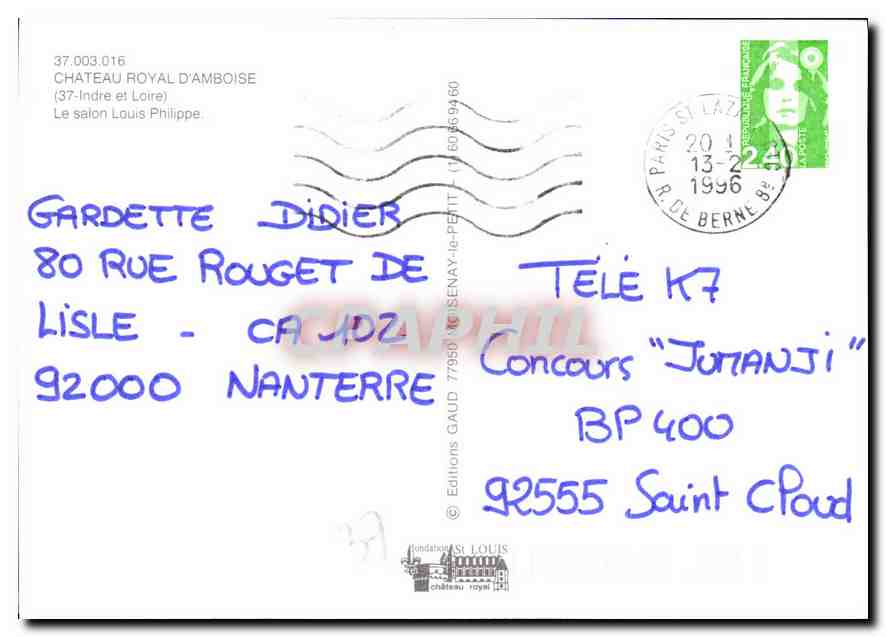 37.003.016
CHATEAU ROYAL D'AMBOISE
(37-Indre et Loire)
Le salon Louis Philippe.
REPUBLIQUE FRANÇAISE
2.40
LA POSTE
PARIS ST LAZ
20
13-2
1996
R. DE BERNE 8e
GARDETTE DiDiER
80 RUE ROUGET DE
LiSLE - CA 102
92000 NANTERRE
© Editions GAUD 77950 MOISENAY-le-PETIT - (1) 60 66 94 60
TÉLÉ K7
CONCOURS "JUMANJi"
BP 400
92555 Saint Cloud
CPAPHIL
fondation St LOUIS
château royal